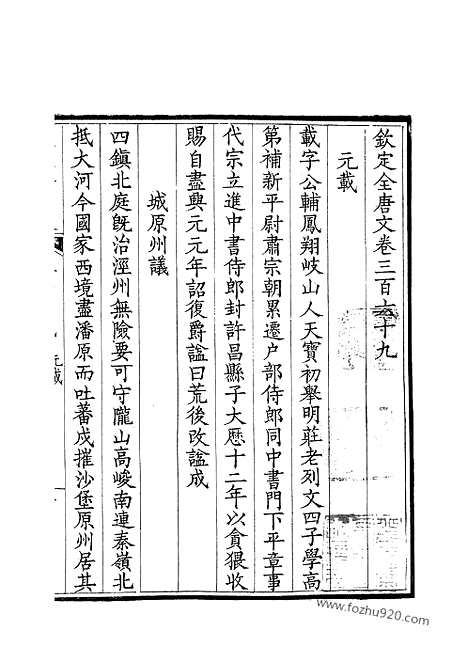 欽定全唐文卷三百六十九
元載
載字公輔鳳翔岐山人天寶初舉明莊老列文四子學高
第補新平尉肅宗朝累遷户部侍郎同中書門下平章事
代宗立進中書侍郎封許昌縣子大厯十二年以貪猥收
賜自盡興元元年詔復爵謚曰荒後改謚成
城原州議
四鎮北庭既治涇州無險要可守隴山高峻南連秦嶺北
抵大河今國家西境盡潘原而吐蕃戍摧沙堡原州居其
元載
www.fozhu920.com